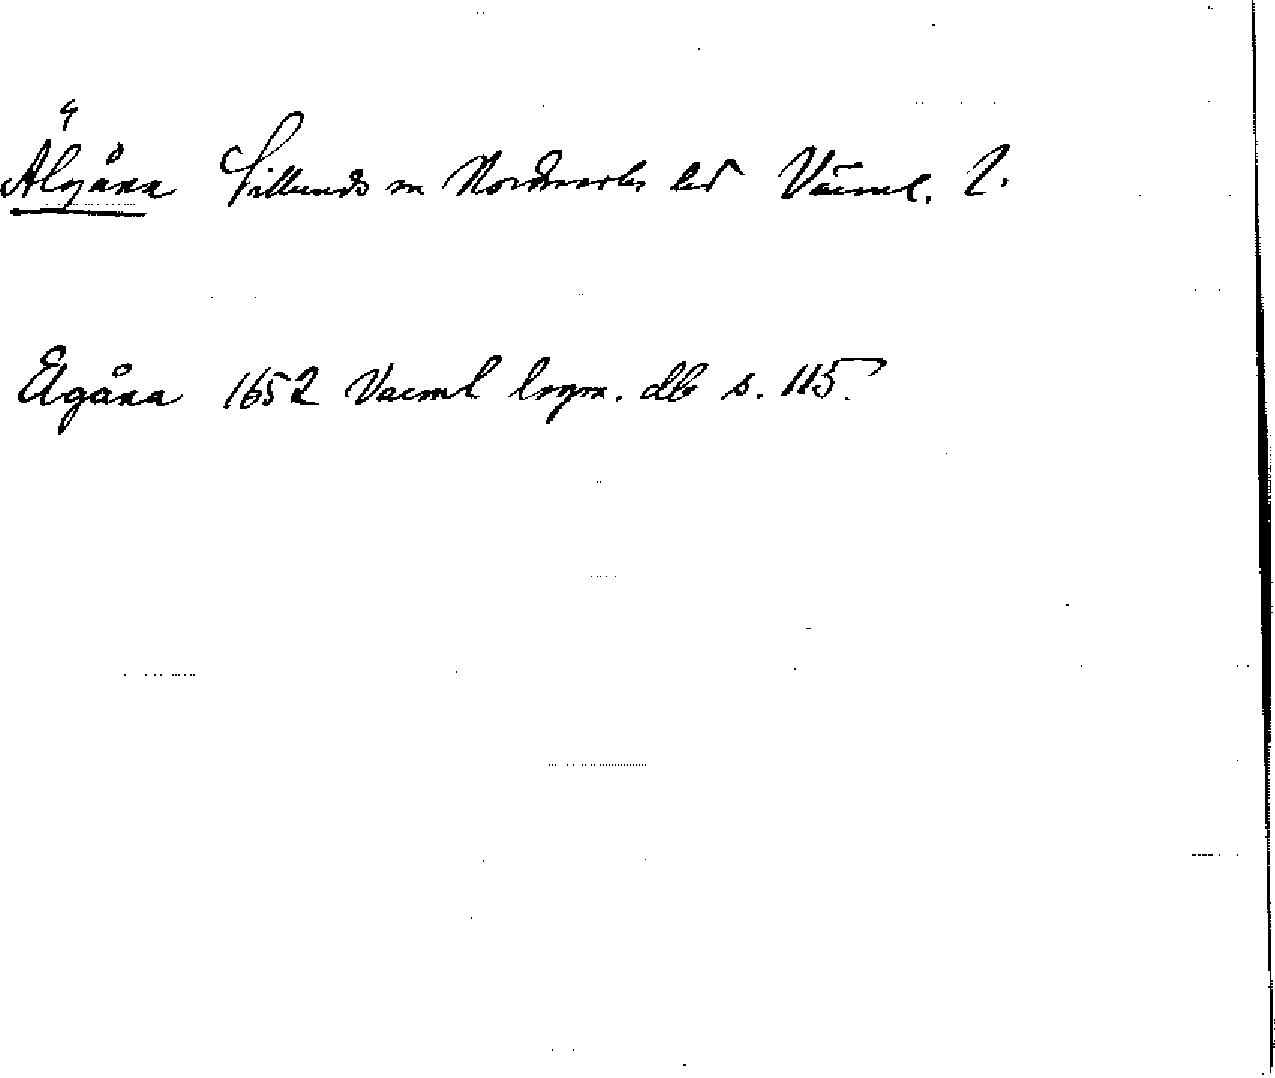 Älgåna Silleruds sn Nordmarks hd Värml. l.
Elgåna 1652 Vaerml lagm. db s. 115.